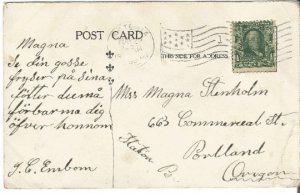 POST CARD
THIS SIDE FOR ADDRESS
Magna
Se din gosse
fryser på sina
fötter du må
förbarma dig
öfver honnom
J. C. Embom
Miss Magna Stenholm
663 Commerceal St.
Portland
Oregon
Station